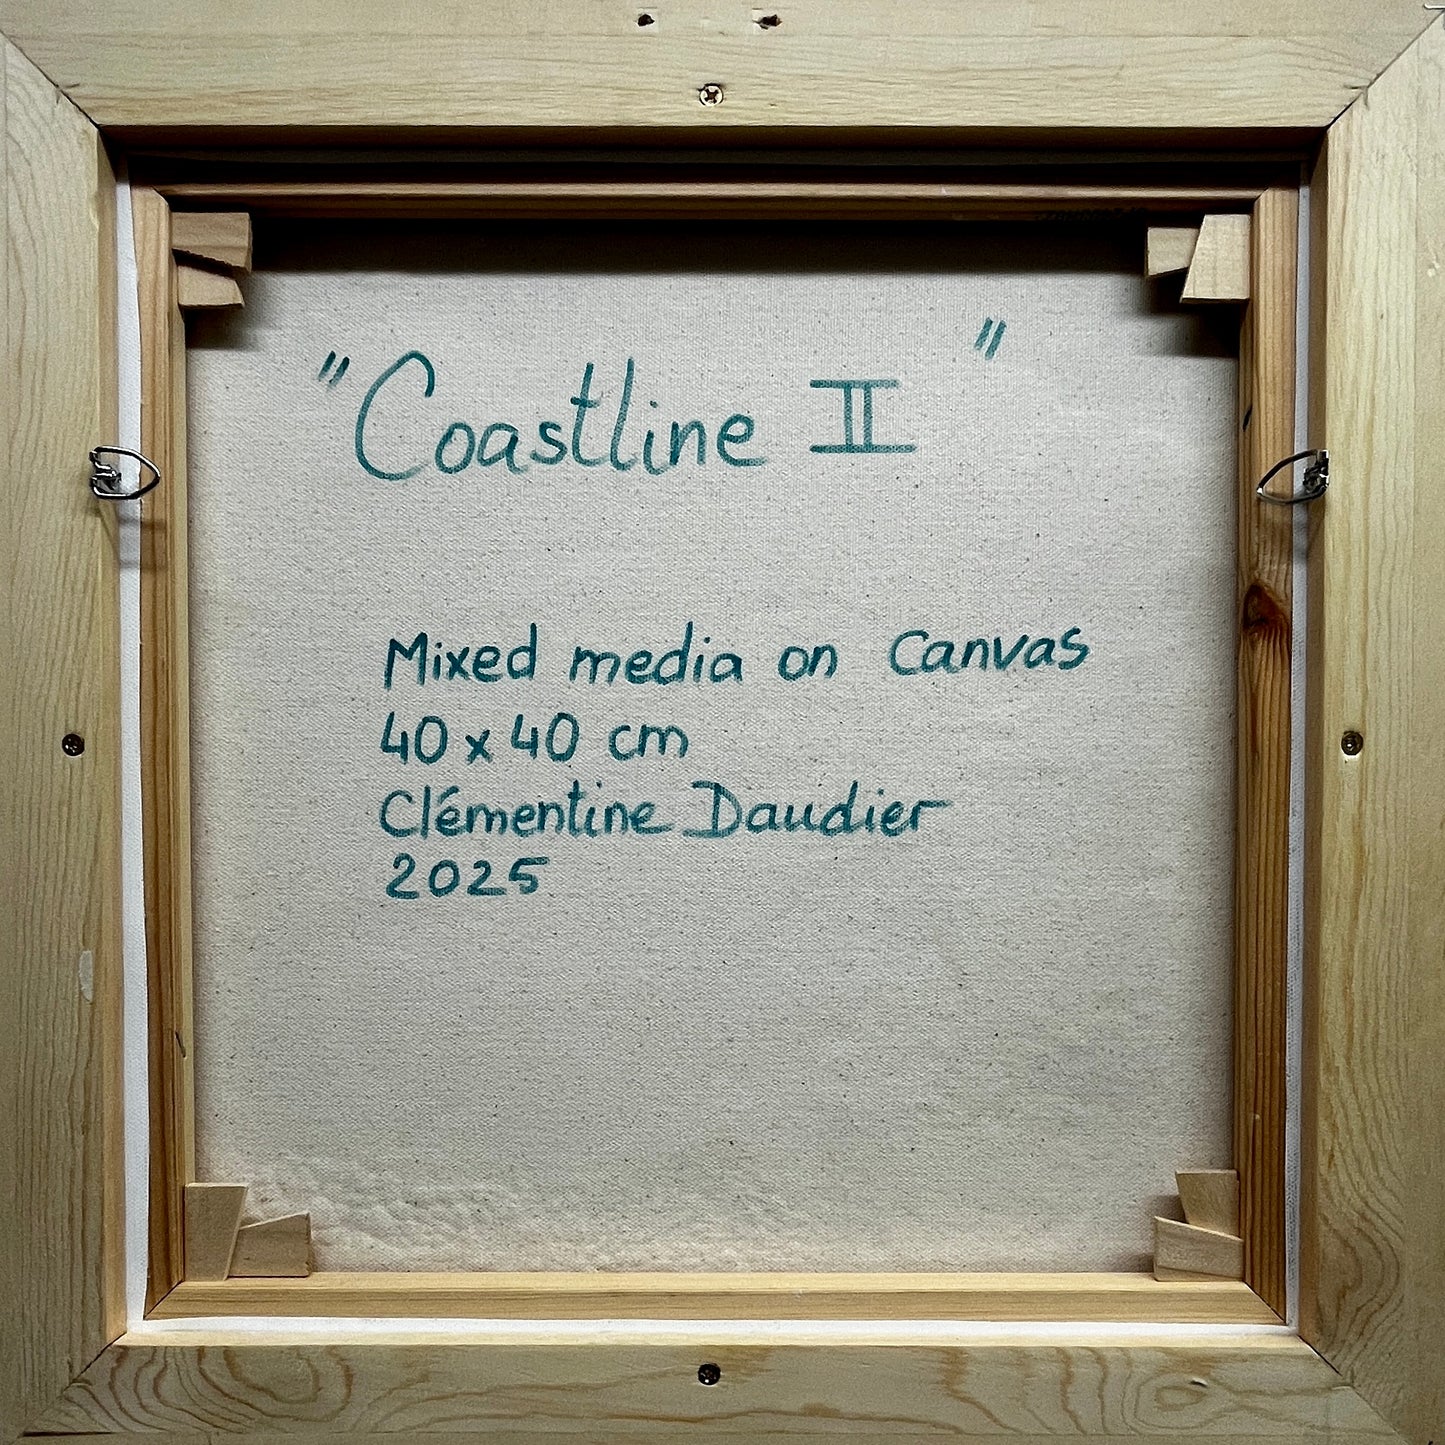 "Coastline II"
Mixed media on Canvas
40 x 40 cm
Clémentine Daudier
2025